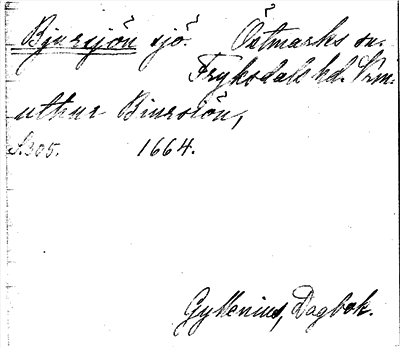 Bjursjön sjö. Östmarks sn.
Fryksdals hd. Vrm.
uthur Biursiön,
S. 305. 1664.
Gyllenius, Dagbok.